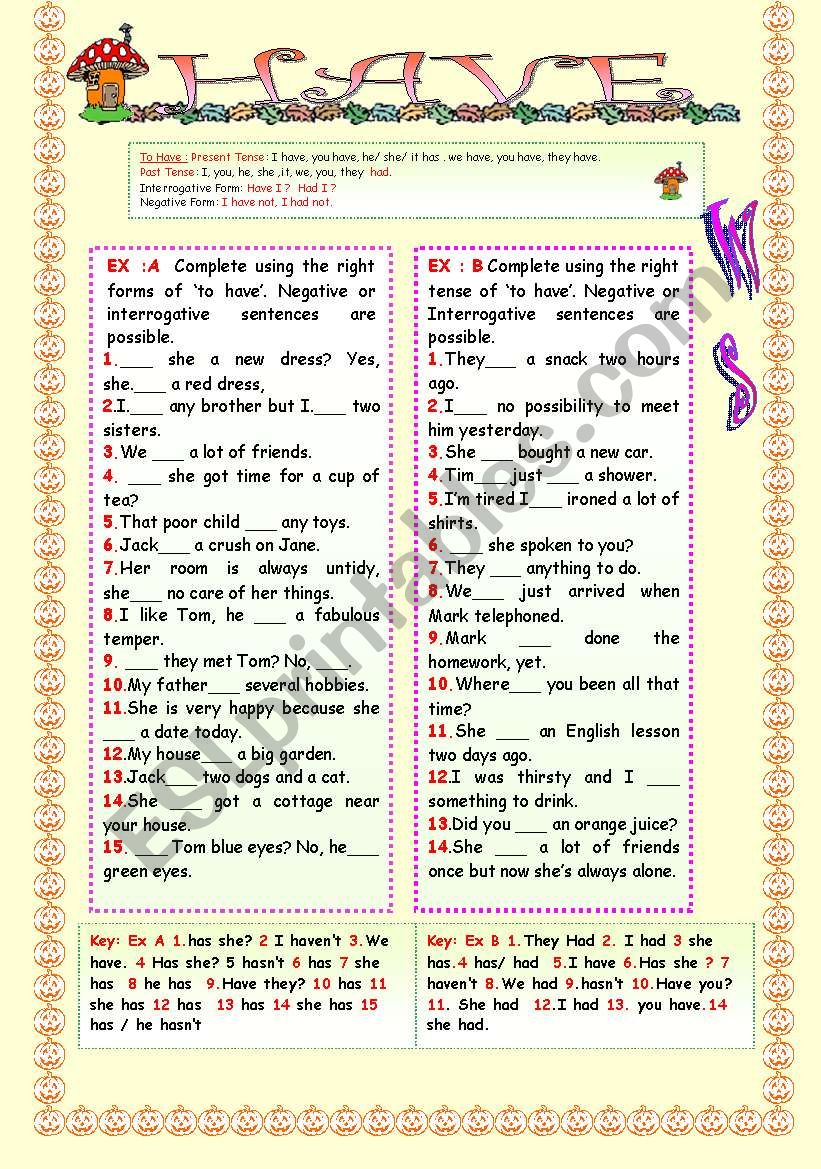 HAVE
To Have : Present Tense: I have, you have, he/ she/ it has . we have, you have, they have.
Past Tense: I, you, he, she ,it, we, you, they had.
Interrogative Form: Have I ? Had I ?
Negative Form: I have not, I had not.
WS
EX :A Complete using the right
forms of ‘to have’. Negative or
interrogative sentences are
possible.
1.___ she a new dress? Yes,
she.___ a red dress,
2.I.___ any brother but I.___ two
sisters.
3.We ___ a lot of friends.
4. ___ she got time for a cup of
tea?
5.That poor child ___ any toys.
6.Jack___ a crush on Jane.
7.Her room is always untidy,
she___ no care of her things.
8.I like Tom, he ___ a fabulous
temper.
9. ___ they met Tom? No, ___.
10.My father___ several hobbies.
11.She is very happy because she
___ a date today.
12.My house___ a big garden.
13.Jack___ two dogs and a cat.
14.She ___ got a cottage near
your house.
15. ___ Tom blue eyes? No, he___
green eyes.
EX : B Complete using the right
tense of ‘to have’. Negative or
Interrogative sentences are
possible.
1.They___ a snack two hours
ago.
2.I___ no possibility to meet
him yesterday.
3. She ___ bought a new car.
4.Tim___ just ___ a shower.
5.I’m tired I___ ironed a lot of
shirts.
6. ___ she spoken to you?
7.They ___ anything to do.
8.We___ just arrived when
Mark telephoned.
9.Mark ___ done the
homework, yet.
10.Where___ you been all that
time?
11.She ___ an English lesson
two days ago.
12.I was thirsty and I ___
something to drink.
13.Did you ___ an orange juice?
14.She ___ a lot of friends
once but now she’s always alone.
Key: Ex A 1.has she? 2 I haven't 3.We
have. 4 Has she? 5 hasn't 6 has 7 she
has 8 he has 9.Have they? 10 has 11
she has 12 has 13 has 14 she has 15
has / he hasn't
Key: Ex B 1.They Had 2. I had 3 she
has.4 has/ had 5.I have 6.Has she ? 7
haven't 8.We had 9.hasn't 10.Have you?
11. She had 12.I had 13. you have.14
she had.
ESLprintables.com